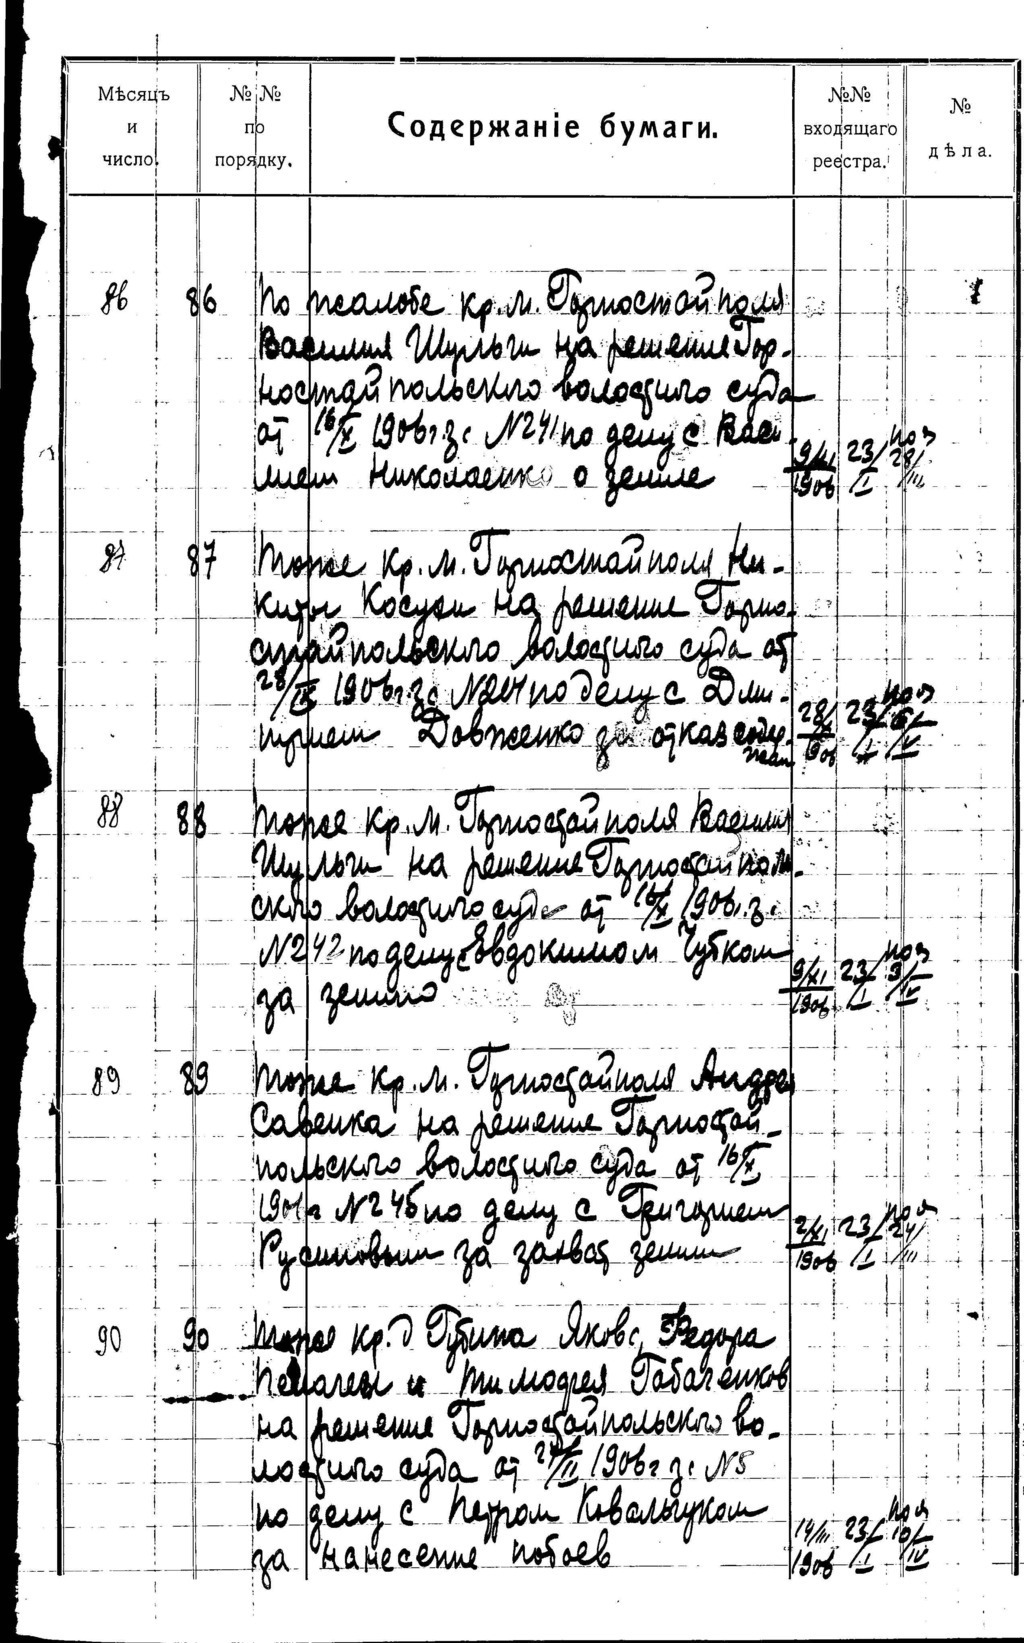 Мѣсяцъ и число.
№№ по порядку.
Содержаніе бумаги.
№№ входящаго реестра.
№ дѣла.
86 86 По жалобе кр. м. Горностайполя
Василия Шульги на решение Гор-
ностайпольского волостного суда
от 16/X 1906 г. за N241 по делу с Васи-
лием Николаенко о земле
9/XI 1906 23/I 28/III
87 87 Тоже кр. м. Горностайполя Ни-
киты Косухи на решение Горно-
стайпольского волостного суда от
28/IX 1906 г. за по делу с Дми-
трием Довженко за отказ содер-
жан.
28/ 1906 23/I
88 88 Тоже кр. м. Горностайполя Василия
Шульги на решение Горностайполь-
ского волостного суда от 16/X 1906 г. за
N242 по делу с Евдокимом Чубком
за землю
9/XI 1906 23/I 3/IV
89 89 Тоже кр. м. Горностайполя Андрея
Савенка на решение Горностай-
польского волостного суда от 16/X
1906 г N245 по делу с Григорием
Русиновым за захват земли
2/XI 1906 23/I 24/III
90 90 Тоже кр. д Губина Якова, Федора
и Тимофея Габаченков
на решение Горностайпольского во-
лостного суда от 27/II 1906 г за N8
по делу с Петром Ковальчуком
за нанесение побоев
14/III 1906 23/I 10/IV